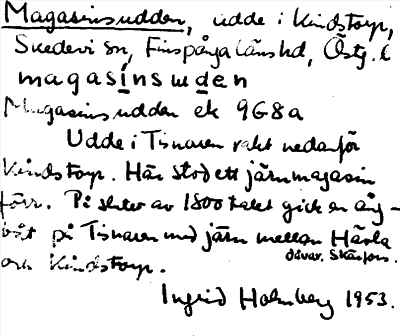 Magasinsudden, udde i Kindstorp,
Skedevi sn, Finspånga länshd, Östg. l
magasinsuden
Magasinsudden ek 9G8a
Udde i Tisnaren rakt nedanför
Kindstorp. Här stod ett järnmagasin
förr. På slutet av 1800 talet gick en ång-
båt på Tisnaren med järn mellan Hävla
och Kindstorp.
Ingrid Holmberg 1953.